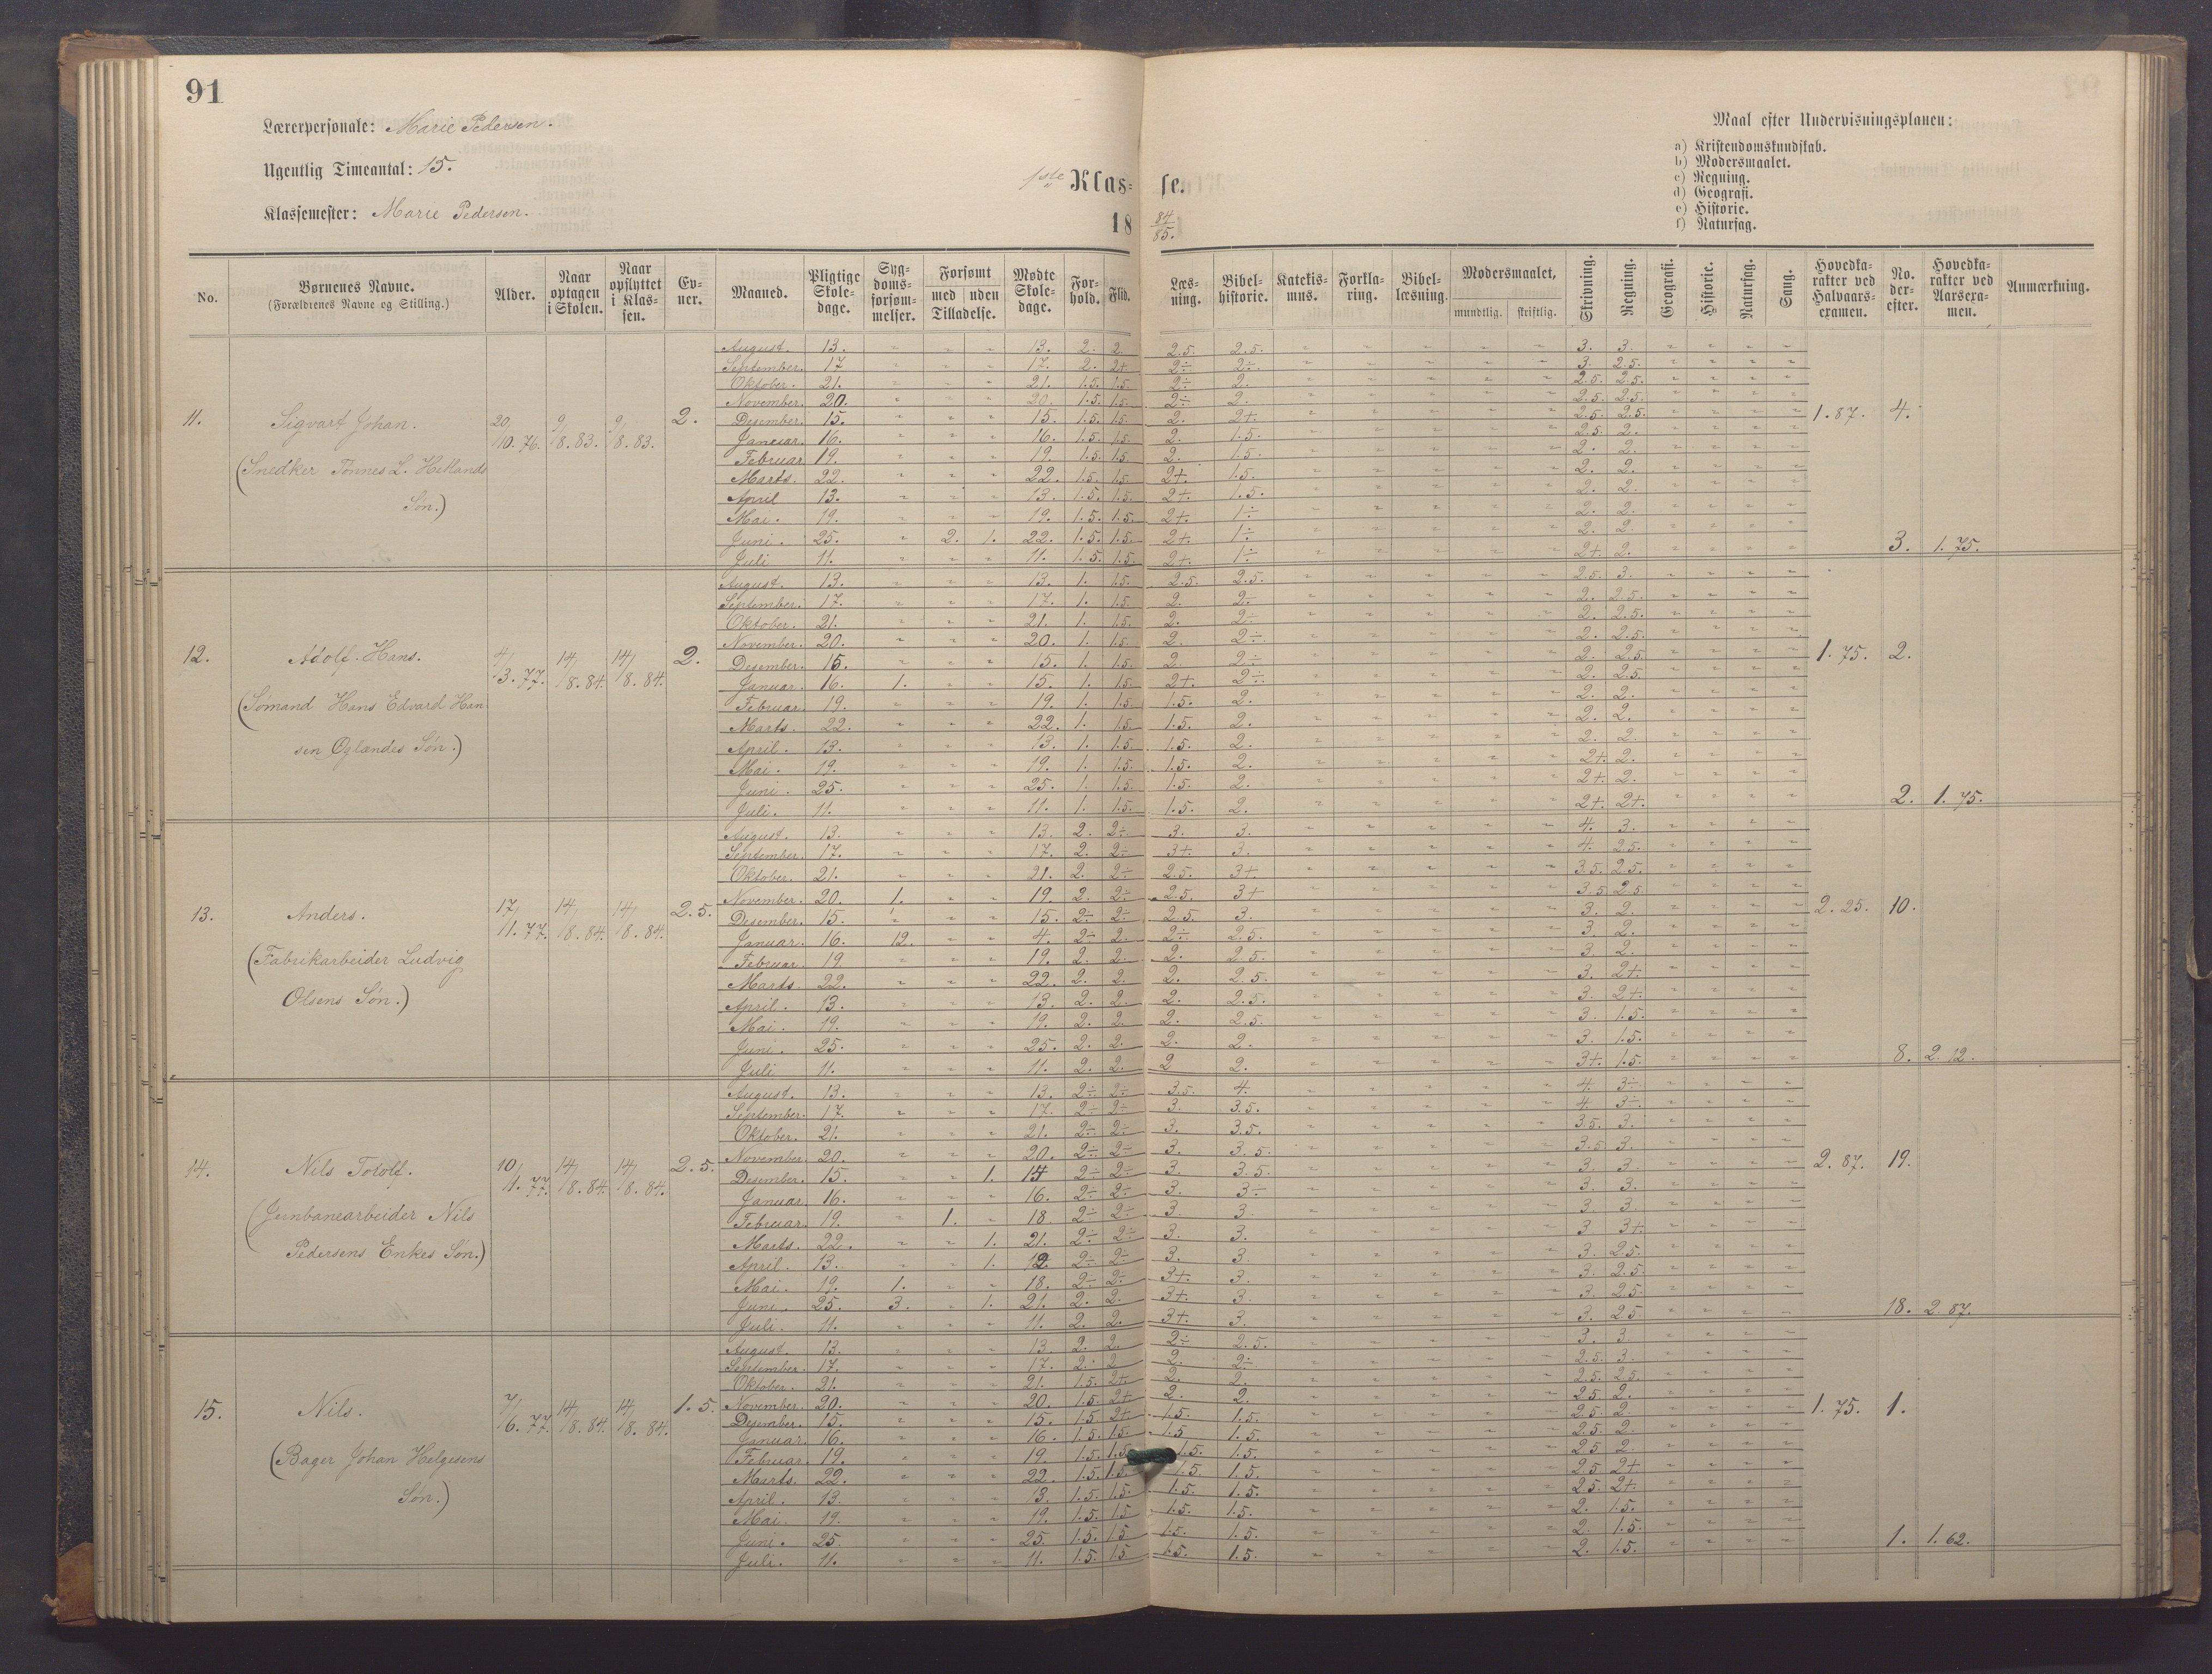 91
Lærerpersonale: Marie Pedersen.
Ugentlig Timeantal: 15.
Klassemester: Marie Pedersen.
1ste Klas- se.
18 84/85.
Maal efter Undervisningsplanen:
a) Kristendomskundskab.
b) Modersmaalet.
c) Regning.
d) Geografi.
e) Historie.
f) Naturfag.
No. | Børnenes Navne. (Forældrenes Navne og Stilling.) | Alder. | Naar optagen i Skolen. | Naar opflyttet i Klas- sen. | Ev- ner. | Maaned. | Pligtige Skole- dage. | Syg- doms- forsøm- melser. | Forsømt med uden Tilladelse. | Mødte Skole- dage. | For- hold. | Flid. | Læs- ning. | Bibel- historie. | Katekis- mus. | Forkla- ring. | Bibel- læsning. | Modersmaalet, mundtlig. skriftlig. | Skrivning. | Regning. | Geografi. | Historie. | Naturfag. | Sang. | Hovedka- rakter ved Halvaars- examen. | No. der- efter. | Hovedka- rakter ved Aarsexa- men. | Anmærkning.
11. Sigvart Johan. 20/10.76. 9/8.83. 9/8.83. 2. 1.87. 4.
(Snedker Tønnes L. Hellands
Søn.)
August. 13. 13. 2. 2. 2.5. 2.5. 3. 3.
September. 17 17. 2. 2+ 2÷ 2÷. 3. 2.5.
Oktober. 21. 21. 1.5. 1.5. 2÷ 2. 2.5. 2.5.
November. 20. 20. 1.5. 1.5. 2÷ 2. 2.5. 2.5.
Desember. 15. 15. 1.5. 1.5. 2. 2+. 2.5. 2.5.
Januar. 16. 16. 1.5. 1.5. 2. 1.5. 2.5. 2.
Februar. 19. 19. 1.5. 1.5. 2. 1.5. 2. 2.
Marts. 22. 22. 1.5. 1.5. 2+. 1.5. 2. 2.
April 13. 13. 1.5. 1.5. 2+. 1.5. 2. 2.
Mai. 19. 19. 1.5. 1.5. 2+. 1÷ 2. 2.
Juni. 25. 2. 1. 22. 1.5. 1.5. 2+. 1÷ 2. 2.
Juli 11. 11. 1.5. 1.5. 2+ 1÷ 2+. 2. 3. 1.75.
12. Adolf Hans. 4/3.77. 14/8.84. 14/8.84. 2. 1.75. 2.
(Sømand Hans Edvard Han
sen Oglændes Søn.)
August. 13. 13. 1. 1.5. 2.5. 2.5. 2.5. 3.
September. 17. 17. 1. 1.5. 2. 2÷ 2. 2.5.
Oktober. 21. 21. 1. 1.5. 2. 2÷ 2. 2.5.
November. 20. 20. 1. 1.5. 2. 2÷. 2. 2.5.
Desember. 15. 15. 1. 1.5. 2. 2÷ 2. 2.5.
Januar. 16. 1. 15. 1. 1.5. 2+. 2÷. 2. 2.5.
Februar. 19. 19. 1. 1.5. 1.5. 2. 2. 2.
Marts. 22. 22. 1. 1.5. 1.5. 2. 2. 2.
April. 13. 13. 1. 1.5. 1.5. 2. 2. 2.
Mai. 19. 19. 1. 1.5. 1.5. 2. 2+. 2.
Juni. 25. 25. 1. 1.5. 1.5. 2. 2+. 2.
Juli. 11. 11. 1. 1.5. 1.5. 2. 2+. 2+. 2. 1.75.
13. Anders. 17/11.77. 14/8.84. 14/8.84. 2.5. 2.25. 10.
(Fabrikarbeider Ludvig
Olsens Søn.)
August. 13. 13. 2. 2÷ 3. 3. 4. 3.
September. 17. 17. 2. 2÷ 3+. 3. 4. 2.5.
Oktober. 21. 21. 2. 2÷ 2.5. 3+ 3.5. 2.5.
November. 20. 1. 19. 2. 2÷ 2.5. 3+ 3.5 2.5.
Desember. 15. 15. 2÷ 2÷ 2.5. 3. 3. 2.
Januar. 16. 12. 4. 2÷ 2. 2÷ 2.5. 3. 2.
Februar. 19 19. 2. 2. 2. 2.5. 3 2.
Marts. 22. 22. 2. 2. 2. 2.5. 3. 2+.
April. 13. 13. 2. 2. 2. 2.5. 3. 2+.
Mai. 19. 19. 2. 2. 2. 2.5. 3. 1.5.
Juni. 25. 25. 2. 2. 2. 2. 3. 1.5.
Juli 11. 11. 2. 2. 2 2. 3+. 1.5. 8. 2.12.
14. Nils Torolf. 10/11.77. 14/8.84. 14/8.84. 2.5. 2.87. 19.
(Jernbanearbeider Nils
Pedersens Enkes Søn.)
August. 13. 13. 2÷ 2÷ 3.5. 4. 4. 3÷.
September. 17. 17. 2÷ 2÷ 3. 3.5. 4. 3÷.
Oktober. 21. 21. 2÷ 2÷ 3. 3.5. 3.5. 3.
November. 20. 20. 2÷ 2÷ 3. 3.5. 3.5 3.
Desember. 15. 1. 14 2÷ 2÷ 3. 3.5. 3. 3.
Januar. 16. 16. 2÷ 2÷ 3. 3÷ 3. 3.
Februar. 19. 1. 18. 2÷ 2÷ 3. 3. 3. 3.
Marts. 22. 1. 21. 2÷ 2÷ 3. 3. 3 3+.
April. 13. 1. 12. 2÷ 2÷ 3. 3. 3. 2.5.
Mai. 19. 1. 18. 2÷ 2÷ 3+. 3. 3. 2.5.
Juni. 25. 3. 1. 21. 2. 2. 3+. 3. 3. 2.5.
Juli. 11. 11. 2. 2. 3+. 3. 3. 2.5. 18. 2.87.
15. Nils. 7/6.77. 14/8.84. 14/8.84. 1.5. 1.75. 1.
(Bager Johan Helgesens
Søn.)
August. 13. 13. 2. 2. 2÷ 2.5. 3. 3.
September. 17. 17. 2. 2 2. 2÷ 2.5. 3.
Oktober. 21. 21. 1.5. 2+ 2. 2. 2.5. 2.5.
November. 20. 20. 1.5 2+ 2. 2. 2.5. 2.
Desember. 15. 15. 1.5 2+ 1.5. 1.5. 2.5. 2.
Januar. 16. 16. 1.5. 1.5. 1.5 1.5. 2.5. 2.
Februar. 19. 19. 1.5. 1.5. 1.5. 1.5. 2.5 2.
Marts. 22. 22. 1.5. 1.5. 1.5. 1.5. 2.5. 2+.
April. 13. 13. 1.5. 1.5. 1.5. 1.5. 2.5. 2+.
Mai. 19. 19. 1.5. 1.5 1.5. 1.5. 2. 1.5.
Juni. 25. 25. 1.5. 1.5 1.5. 1.5. 2. 1.5.
Juli. 11. 11. 1.5. 1.5 1.5. 1.5. 2. 1.5. 1. 1.62.